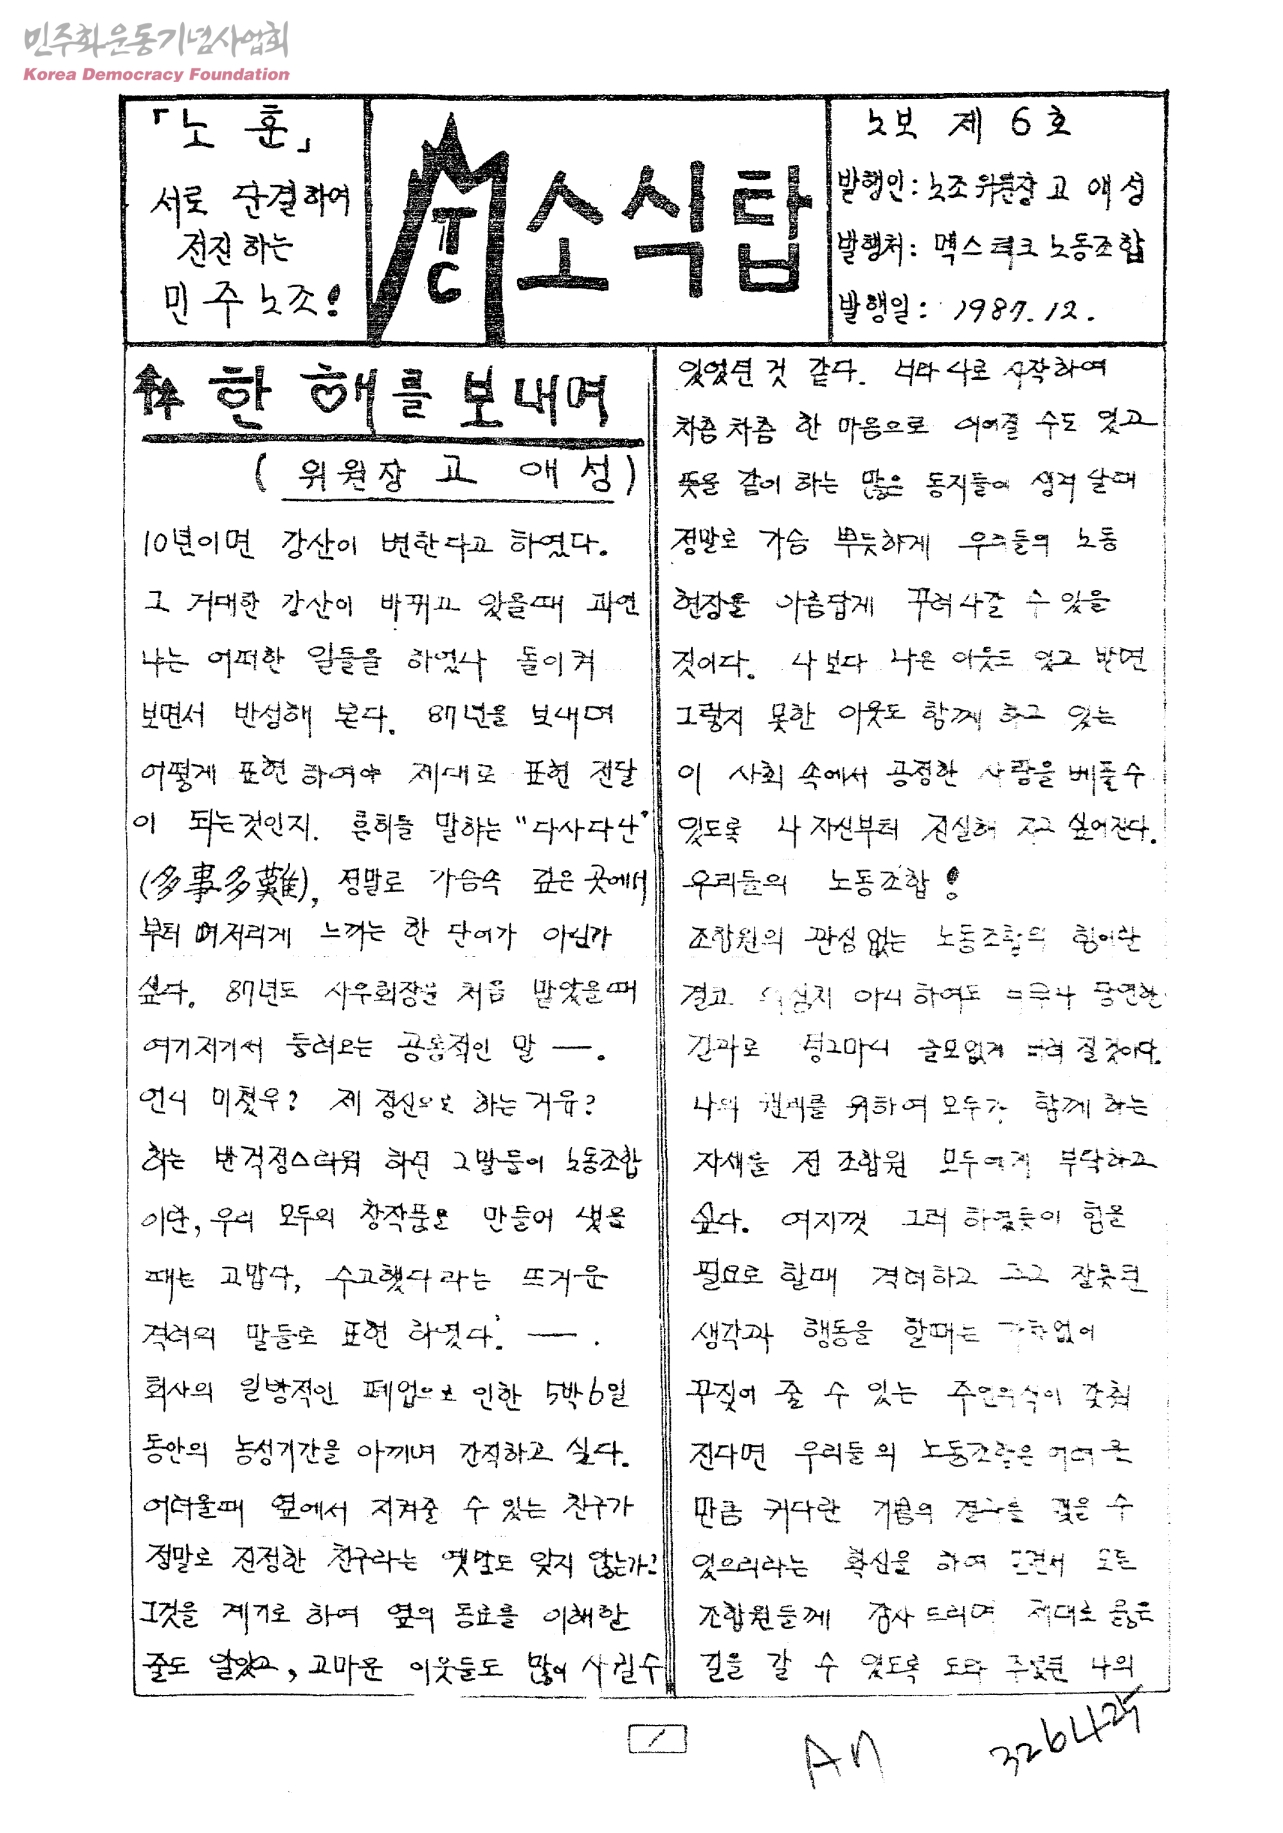 민주화운동기념사업회
Korea Democracy Foundation
「노 훈」
서로 단결하여
전진하는
민주노조!
MTC
소식탑
노보 제 6호
발행인: 노조위원장 고 애성
발행처: 멕스테크 노동조합
발행일: 1987.12.
한 해를 보내며
(위원장 고 애성)
10년이면 강산이 변한다고 하였다.
그 거대한 강산이 바뀌고 있을때 과연
나는 어떠한 일들을 하였나 돌이켜
보면서 반성해 본다. 87년을 보내며
어떻게 표현하여야 제대로 표현 전달
이 되는것인지. 흔히들 말하는 "다사다난"
(多事多難), 정말로 가슴속 깊은 곳에서
부터 뼈저리게 느끼는 한 단어가 아닌가
싶다. 87년도 사우회장을 처음 맡았을때
여기저기서 들려오는 공통적인 말 ―.
언니 미쳤우? 제 정신으로 하는거유?
하는 반걱정스러워 하던 그말들이 노동조합
이란, 우리 모두의 창작품을 만들어 냈을
때는 고맙다, 수고했다라는 뜨거운
격려의 말들로 표현 하였다. ―.
회사의 일방적인 폐업으로 인한 5박6일
동안의 농성기간을 아끼며 간직하고 싶다.
어려울때 옆에서 지켜줄 수 있는 친구가
정말로 진정한 친구라는 옛말도 있지 않는가?
그것을 계기로 하여 옆의 동료를 이해할
줄도 알았고, 고마운 이웃들도 많이 사귈수
있었던 것 같다. 너와 나로 시작하여
차츰차츰 한 마음으로 이어질 수도 있고
뜻을 같이 하는 많은 동지들이 생겨 날때
정말로 가슴 뿌듯하게 우리들의 노동
현장을 아름답게 꾸려나갈 수 있을
것이다. 나보다 나은 이웃도 있고 반면
그렇지 못한 이웃도 함께 하고 있는
이 사회 속에서 공정한 사랑을 베풀수
있도록 나 자신부터 진실해 지고 싶어진다.
우리들의 노동조합!
조합원의 관심없는 노동조합의 힘이란
결코 의심치 아니하여도 너무나 당연한
결과로 조그마니 쓸모없게 되어 질것이다.
나의 권리를 위하여 모두가 함께 하는
자세를 전 조합원 모두에게 부탁하고
싶다. 여지껏 그러 하였듯이 힘을
필요로 할때 격려하고 그리고 잘못된
생각과 행동을 할때는 가차없이
꾸짖어 줄 수 있는 주인의식이 갖춰
진다면 우리들의 노동조합은
만큼 커다란 기쁨의 결과를 맺을 수
있으리라는 확신을 하여 보면서 모든
조합원들께 감사 드리며 제대로 옳은
길을 갈 수 있도록 도와 주었던 나의
1
An 326425